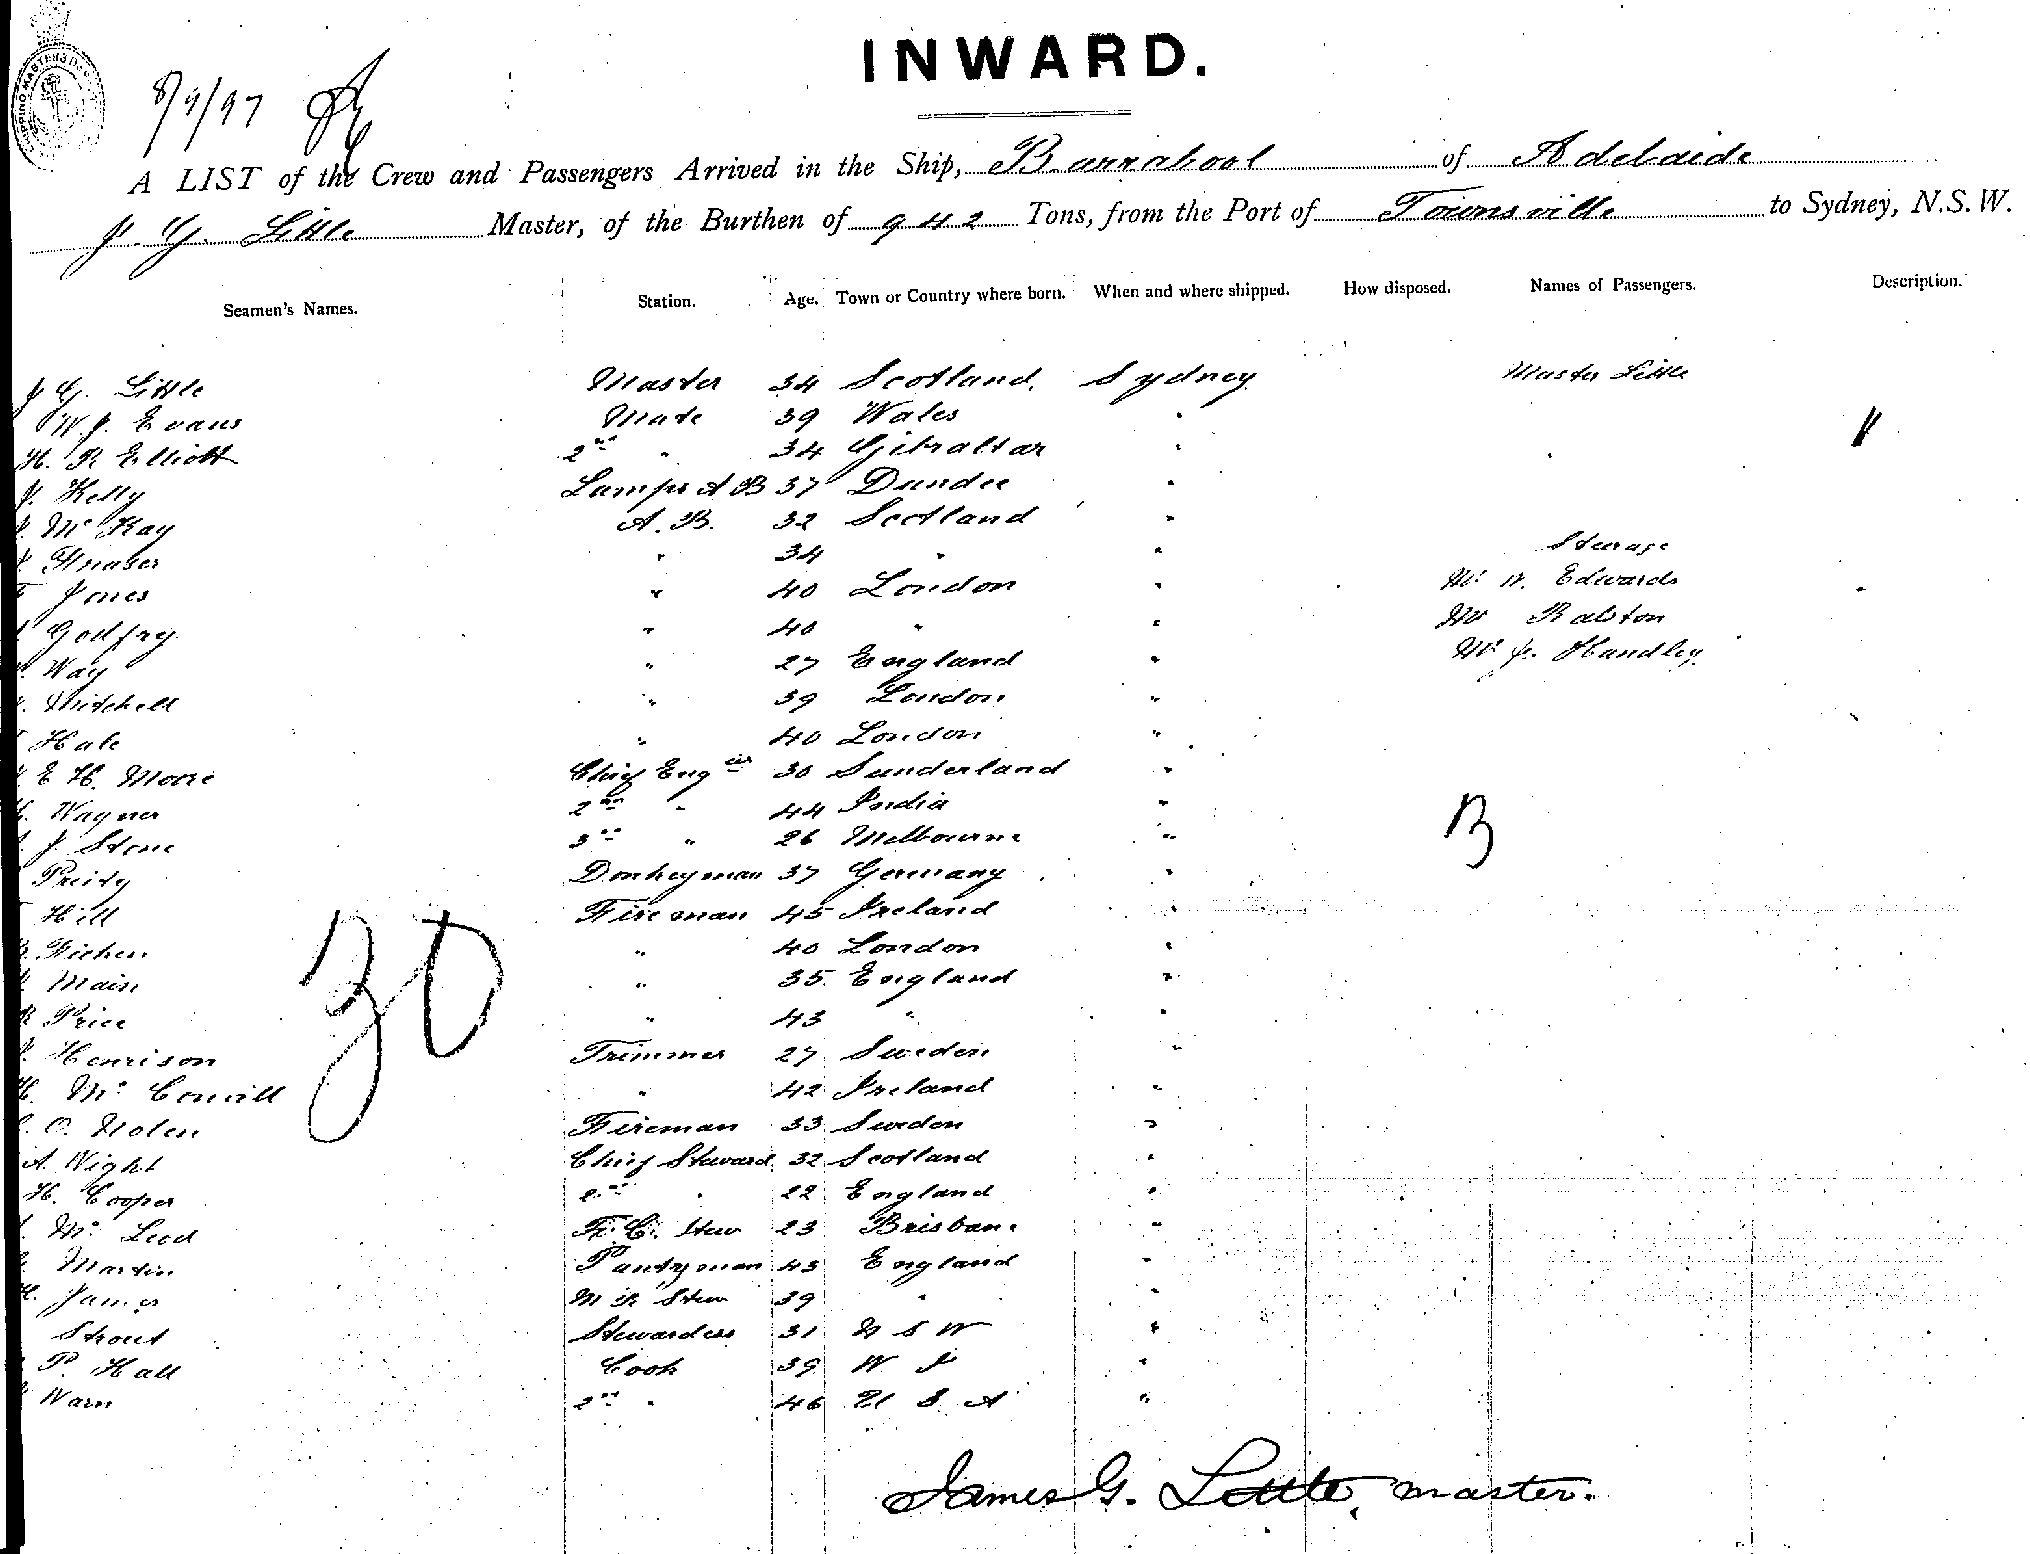 INWARD.
8/9/97
A LIST of the Crew and Passengers Arrived in the Ship, Barrabool of Adelaide
J. G. Little Master, of the Burthen of 942 Tons, from the Port of Townsville to Sydney, N.S.W.
Seamen's Names. Station. Age. Town or Country where born. When and where shipped. How disposed. Names of Passengers. Description.
J G. Little Master 34 Scotland. Sydney Master Little
W. J. Evans Mate 39 Wales "
H. R Elliott 2nd " 34 Gibraltar "
J. Kelly Lamps A B 37 Dundee "
Mc Kay A. B. 32 Scotland "
Fraser " 34 " " Steerage
Jones " 40 London " Mr W. Edwards
Godfry " 40 " " Mr Ralston
Way " 27 England " Mr J. Handley
Mitchell " 39 London "
Hale " 40 London "
E H. Moore Chief Engeer 30 Sunderland "
Wagner 2nd " 44 India "
J Stone 3rd " 26 Melbourne "
B
Preity Donkeyman 37 Germany "
Hill Fireman 45 Ireland "
Fichen " 40 London "
Main " 35 England "
30
Price " 43 " "
Henrison Trimmer 27 Sweden "
Mc Convill " 42 Ireland "
O. Nolen Fireman 33 Sweden "
A. Wight Chief Steward 32 Scotland "
H. Cooper 2nd " 22 England "
Mc Leod F. C. Stew 23 Brisbane "
Martin Pantryman 43 England "
James M R Stew 39 " "
Strout Stewardess 31 N S W "
P. Hall Cook 39 W I "
Warn 2nd " 46 U S A "
James G. Little, master.